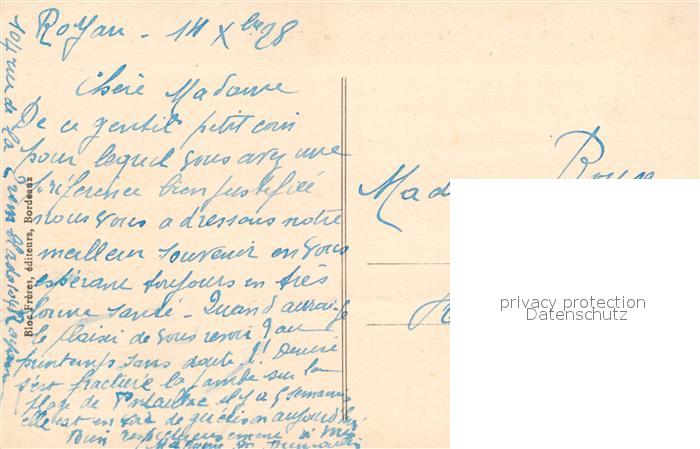 Royan - 14 Xbre 28
Chère Madame
De ce gentil petit coin
pour lequel vous avez une
préférence bien justifiée
nous vous adressons notre
meilleur souvenir en vous
espérant toujours en très
bonne santé - Quand aurai-je
le plaisir de vous revoir ? au
printemps sans doute !! Denise
s'est fracturé la jambe sur la
plage de il y a 5 semaines
elle est en voie de guérison aujourd'hui
Bien respectueusement à vous
Madame
104 rue de la
Bloc Frères, éditeurs, Bordeaux
Mad
privacy protection
Datenschutz